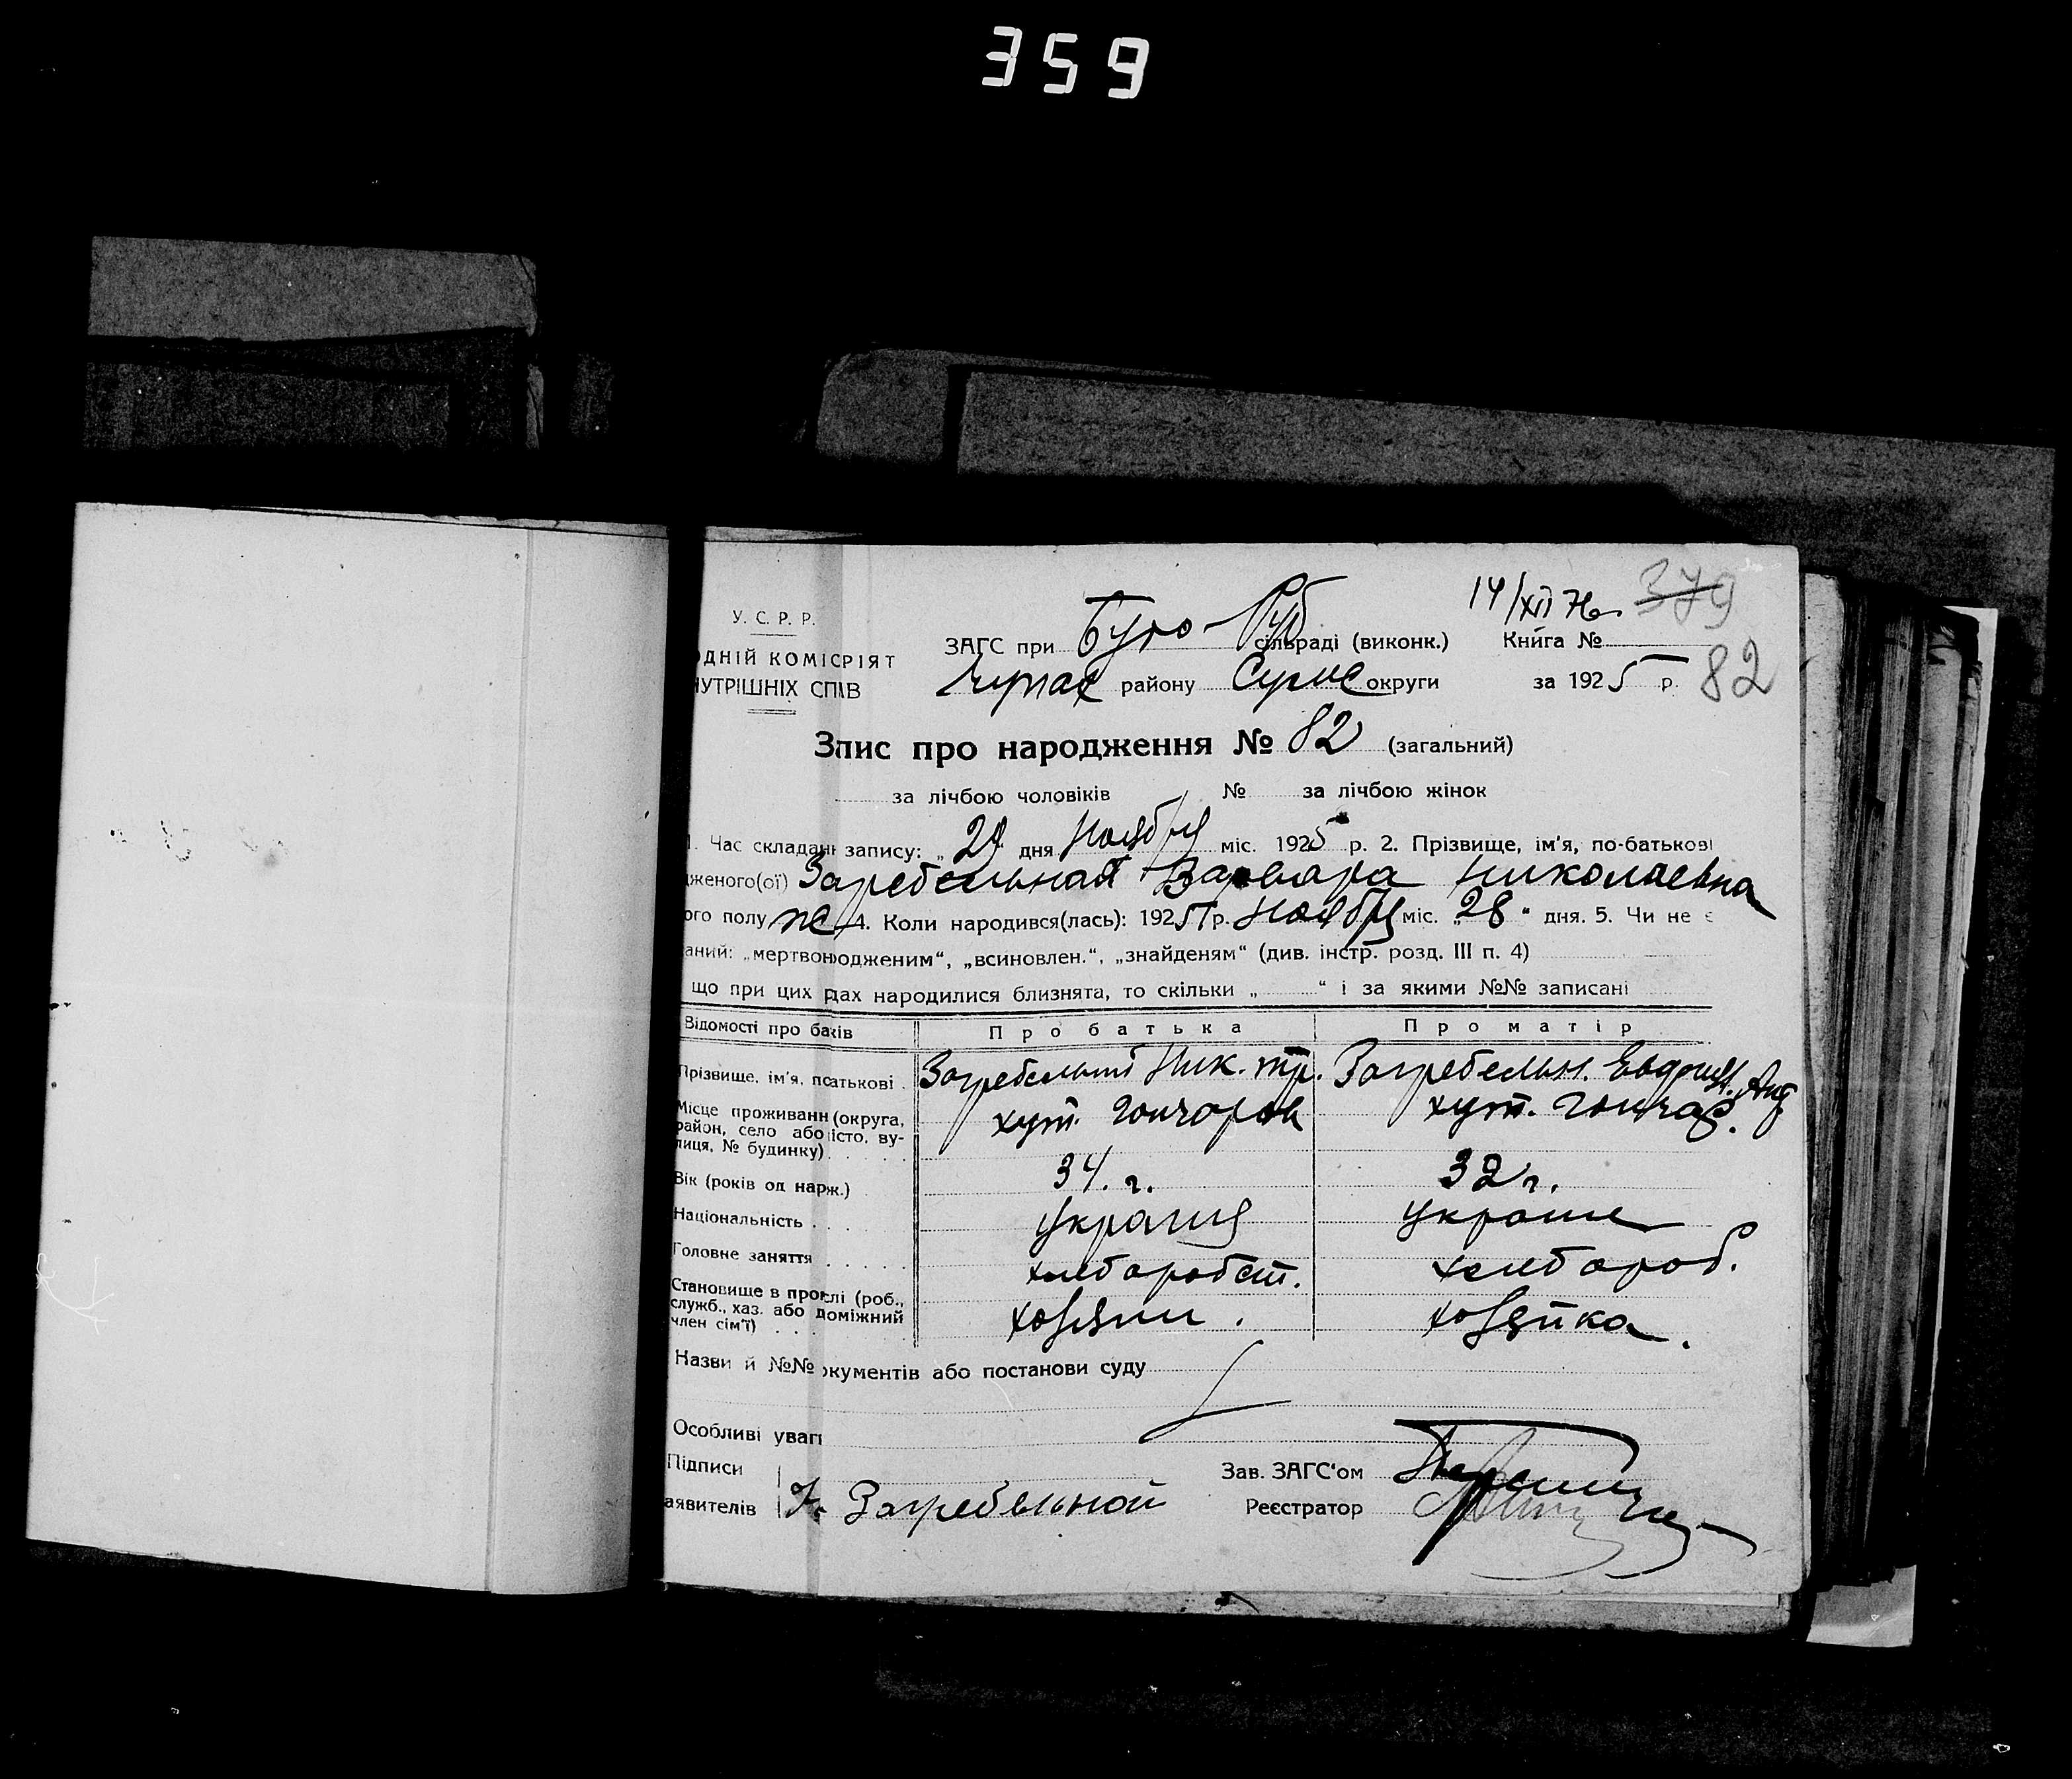 359
14/XII 76 379
У. С. Р. Р.
ЗАГС при Буро-Руб сільраді (виконк.) Книга №
ОДНІЙ КОМІСРІЯТ
НУТРІШНІХ СПІВ
району Сумс округи за 1925 р. 82
Зпис про народження № 82 (загальний)
за лічбою чоловіків № за лічбою жінок
1. Час складанн запису: „29“ дня Ноября міс. 1925 р. 2. Прізвище, ім'я, по-батькові
дженого(ої) Загребельная Варвара Николаевна
ого полу же 4. Коли народився(лась): 1925 р. Ноября міс. „28“ дня. 5. Чи не є
аний: „мертвонродженим“, „всиновлен.“, „знайденям“ (див. інстр. розд. III п. 4)
що при цих рдах народилися близнята, то скільки „ “ і за якими №№ записані
Відомості про баків Про батька Про матір
Прізвище, ім'я, псатькові Загребельный Ник. Тр. Загребельн. Евдоки. Анд
Місце проживанн (округа, район, село або істо, ву- лиця, № будинку) хут. Гончаров хут. Гончар.
Вік (років од нарж.) 34. г. 32 г.
Національність Украин Украин
Головне заняття хлеборобст. хлебороб.
Становище в прослі (роб., служб., хаз. або доміжний член сім'ї) хозяин. хозяйка.
Назви й №№ окументів або постанови суду
Особливі уваги
Підписи Зав. ЗАГС'ом
аявителів Н. Загребельной Реєстратор